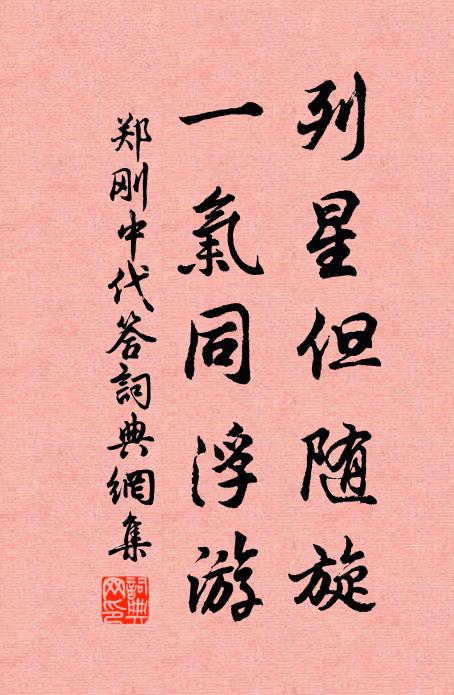 列星但随旋
一氣同浮游
郑刚中代答詞典網集
詞典网印